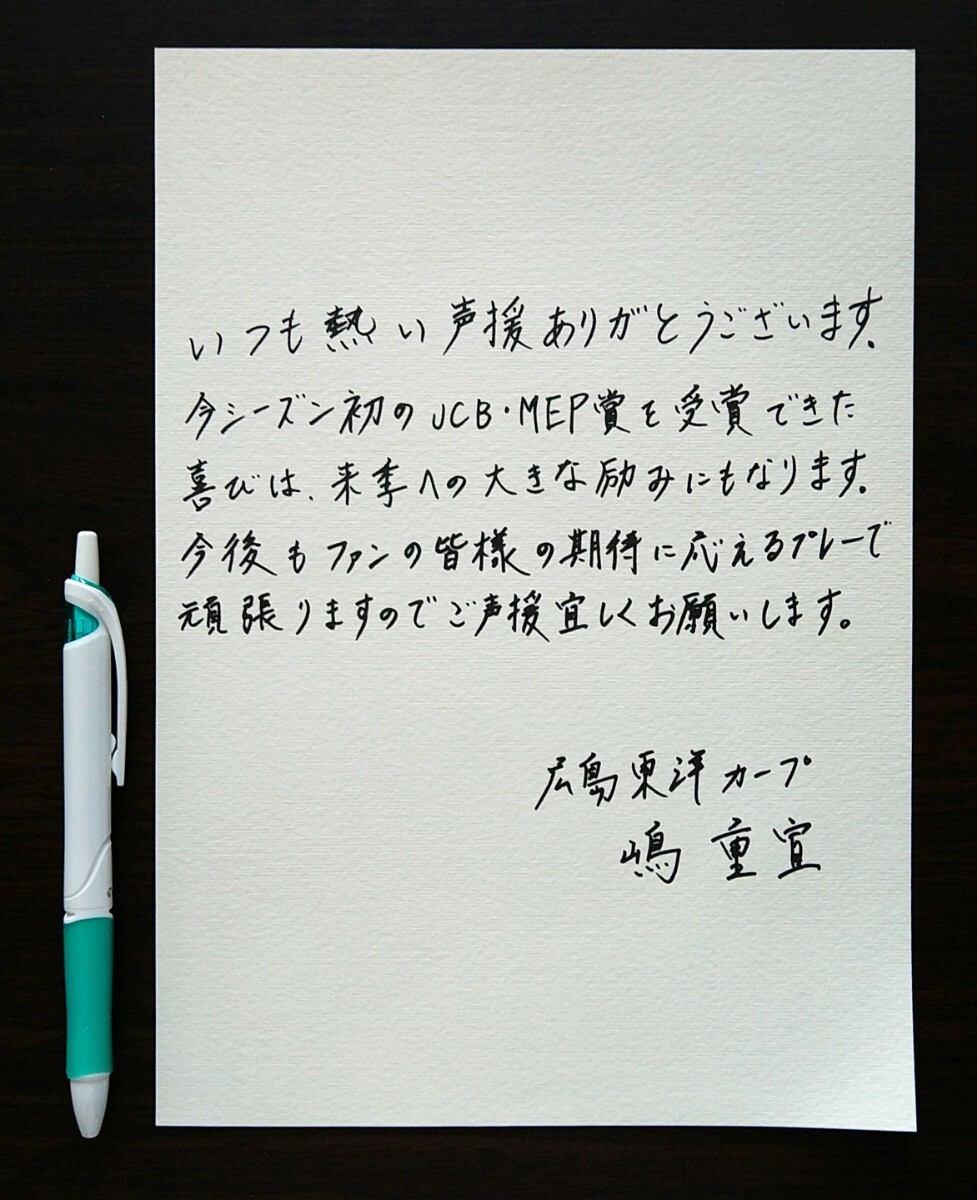 いつも熱い声援ありがとうございます.
今シーズン初のJCB・MEP賞を受賞できた
喜びは、来季への大きな励みにもなります.
今後もファンの皆様の期待に応えるプレーで
頑張りますのでご声援宜しくお願いします。
広島東洋カープ
嶋 重宣